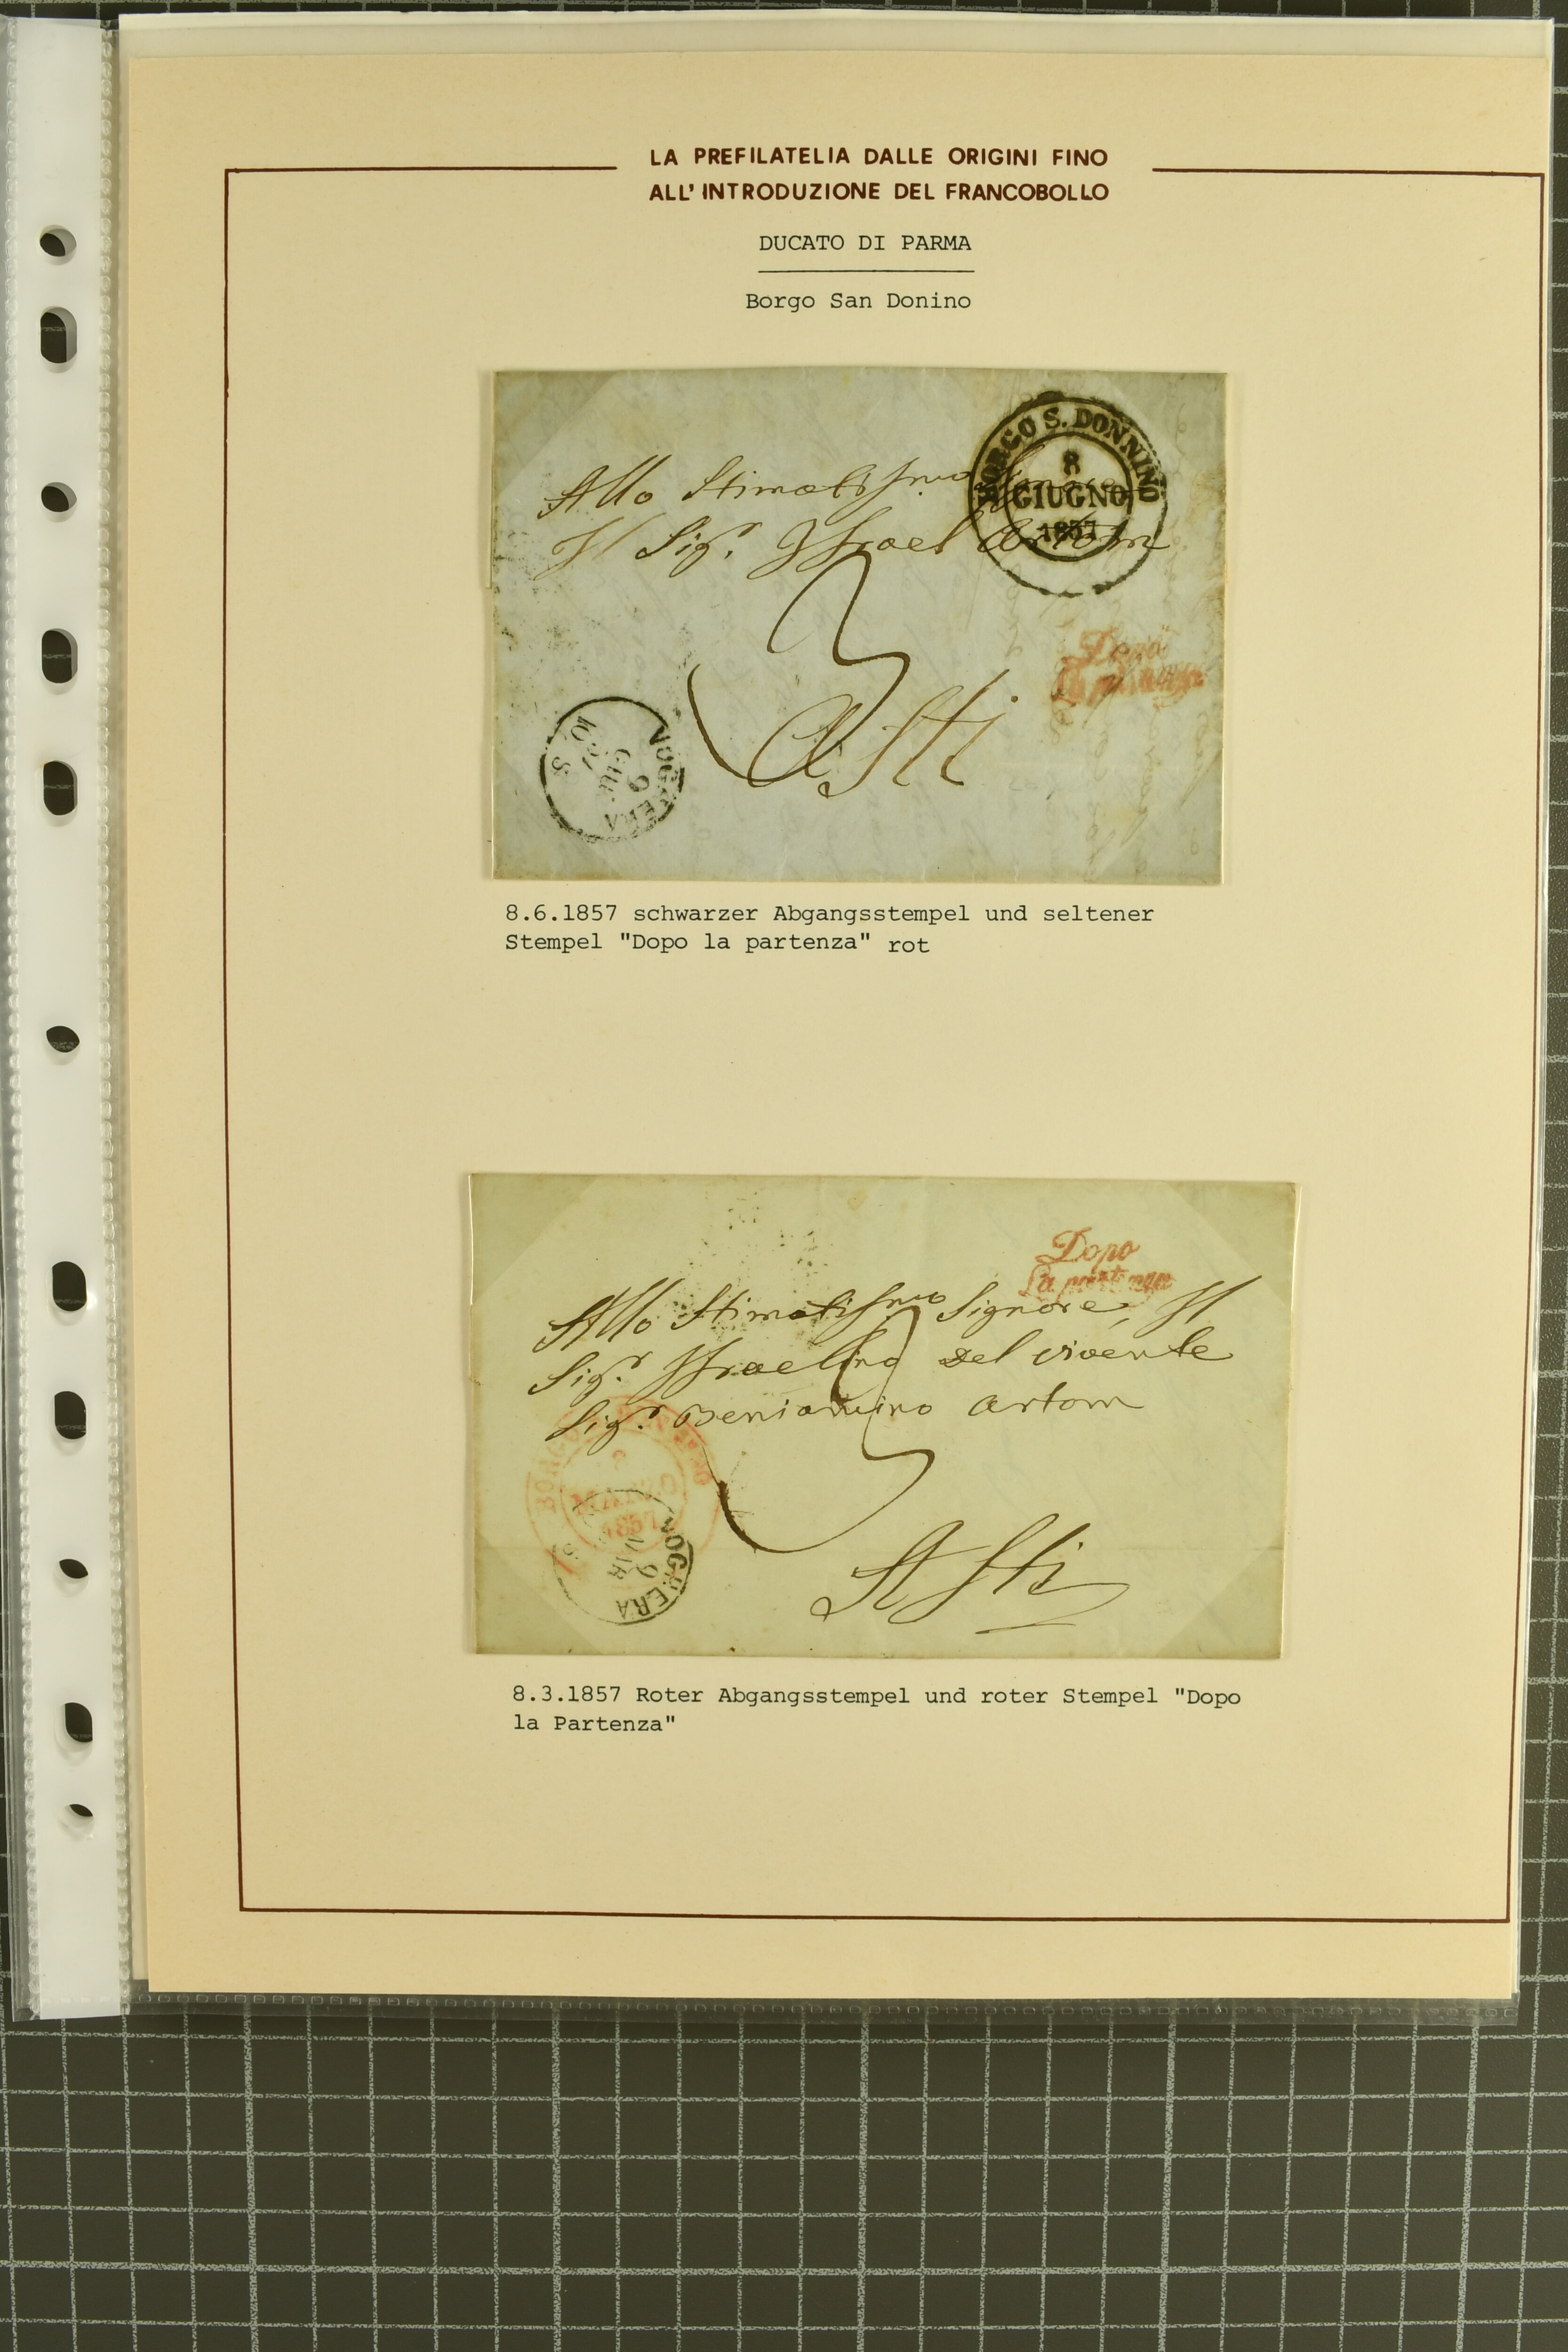 LA PREFILATELIA DALLE ORIGINI FINO
ALL' INTRODUZIONE DEL FRANCOBOLLO
DUCATO DI PARMA
Borgo San Donino
BORGO S. DONNINO
8
GIUGNO
1857
Allo Stimatissmo Signore
Il Sigr. Israel Artom
3
Dopo
La partenza
Asti
VOGHERA
9
GIU
8.6.1857 schwarzer Abgangsstempel und seltener
Stempel "Dopo la partenza" rot
Dopo
La partenza
Allo Stimatissmo Signore, Il
Sigr. Israelino del vivente
Sigr. Beniamino Artom
3
BORGO
8
MARZO
1857
VOGHERA
9
MAR
Asti
8.3.1857 Roter Abgangsstempel und roter Stempel "Dopo
la Partenza"